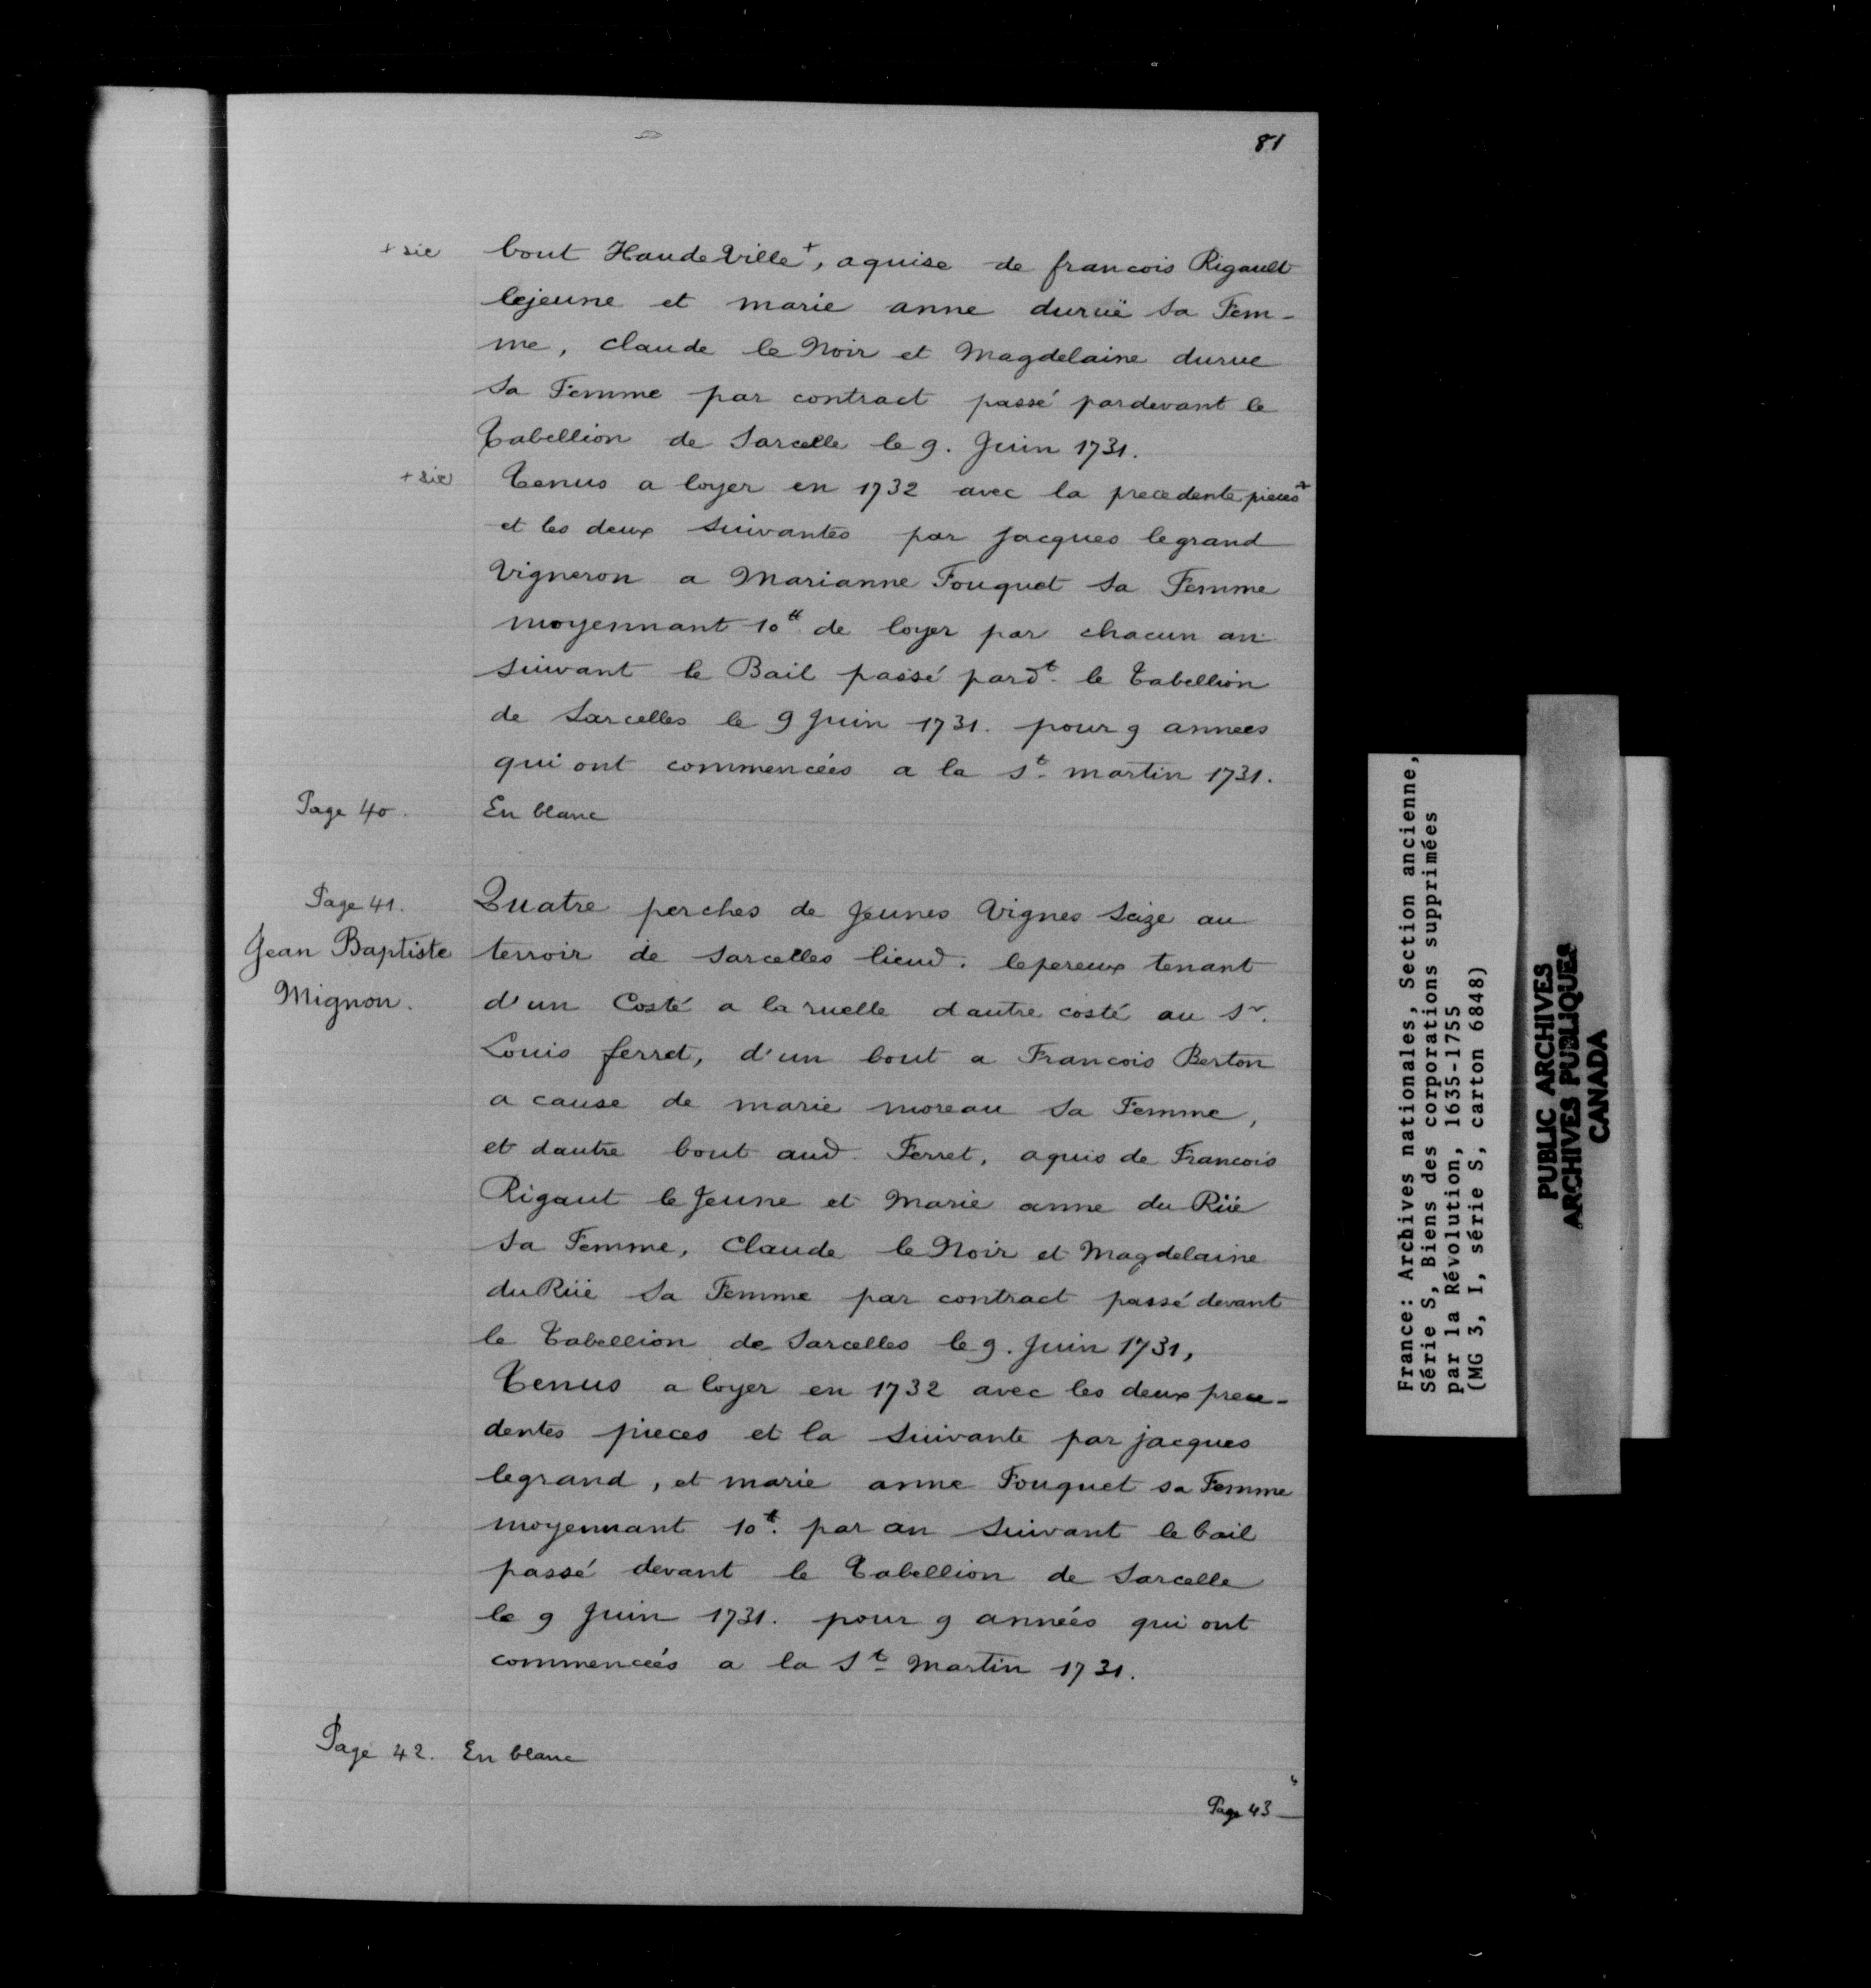 81
+ sic bout HaudeVille+, aquise de francois Rigault
lejeune et marie anne duruë sa Fem-
me, claude le Noir et Magdelaine durue
sa Femme par contract passé pardevant le
Tabellion de Sarcelle le 9. Juin 1731.
+ sic Tenus a loyer en 1732 avec la precedente pieces+
et les deux suivantes par jacques legrand
Vigneron a Marianne Fouquet sa Femme
moyennant 10tt de loyer par chacun an
suivant le Bail passé pardt. le Tabellion
de Sarcelles le 9 Juin 1731. pour 9 années
qui ont commencées a la St. martin 1731.
Page 40. En blanc
Page 41. Quatre perches de Jeunes Vignes Seize au
Jean Baptiste terroir de Sarcelles lieud. lepereux tenant
Mignon. d'un Costé a la ruelle dautre costé au Sr.
Louis ferret, d'un bout a Francois Berton
a cause de marie moreau sa Femme,
et dautre bout aud. Ferret, aquis de Francois
Rigaut le Jeune et Marie anne du Rüe
sa Femme, Claude le Noir et Magdelaine
du Rüe sa Femme par contract passé devant
le Tabellion de Sarcelles le 9. Juin 1731,
Tenus a loyer en 1732 avec les deux prece-
dentes pieces et la suivante par jacques
legrand, et marie anne Fouquet sa Femme
moyennant 10tt. par an suivant le bail
passé devant le Tabellion de Sarcelle
le 9 Juin 1731. pour 9 années qui ont
commencées a la St. Martin 1731.
Page 42. En blanc
Page 43
France: Archives nationales, Section ancienne,
Série S, Biens des corporations supprimées
par la Révolution, 1635-1755
(MG 3, I, série S, carton 6848)
PUBLIC ARCHIVES
ARCHIVES PUBLIQUES
CANADA